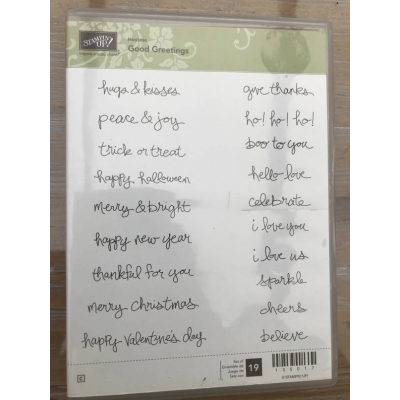 STAMPIN' UP!
Good Greetings
hugs & kisses
peace & joy
trick or treat
happy halloween
merry & bright
happy new year
thankful for you
merry christmas
happy valentine's day
give thanks
ho! ho! ho!
boo to you
hello love
celebrate
i love you
i love us
sparkle
cheers
believe
Set of
Ensemble de
Juego de
19
135017
© STAMPIN' UP!